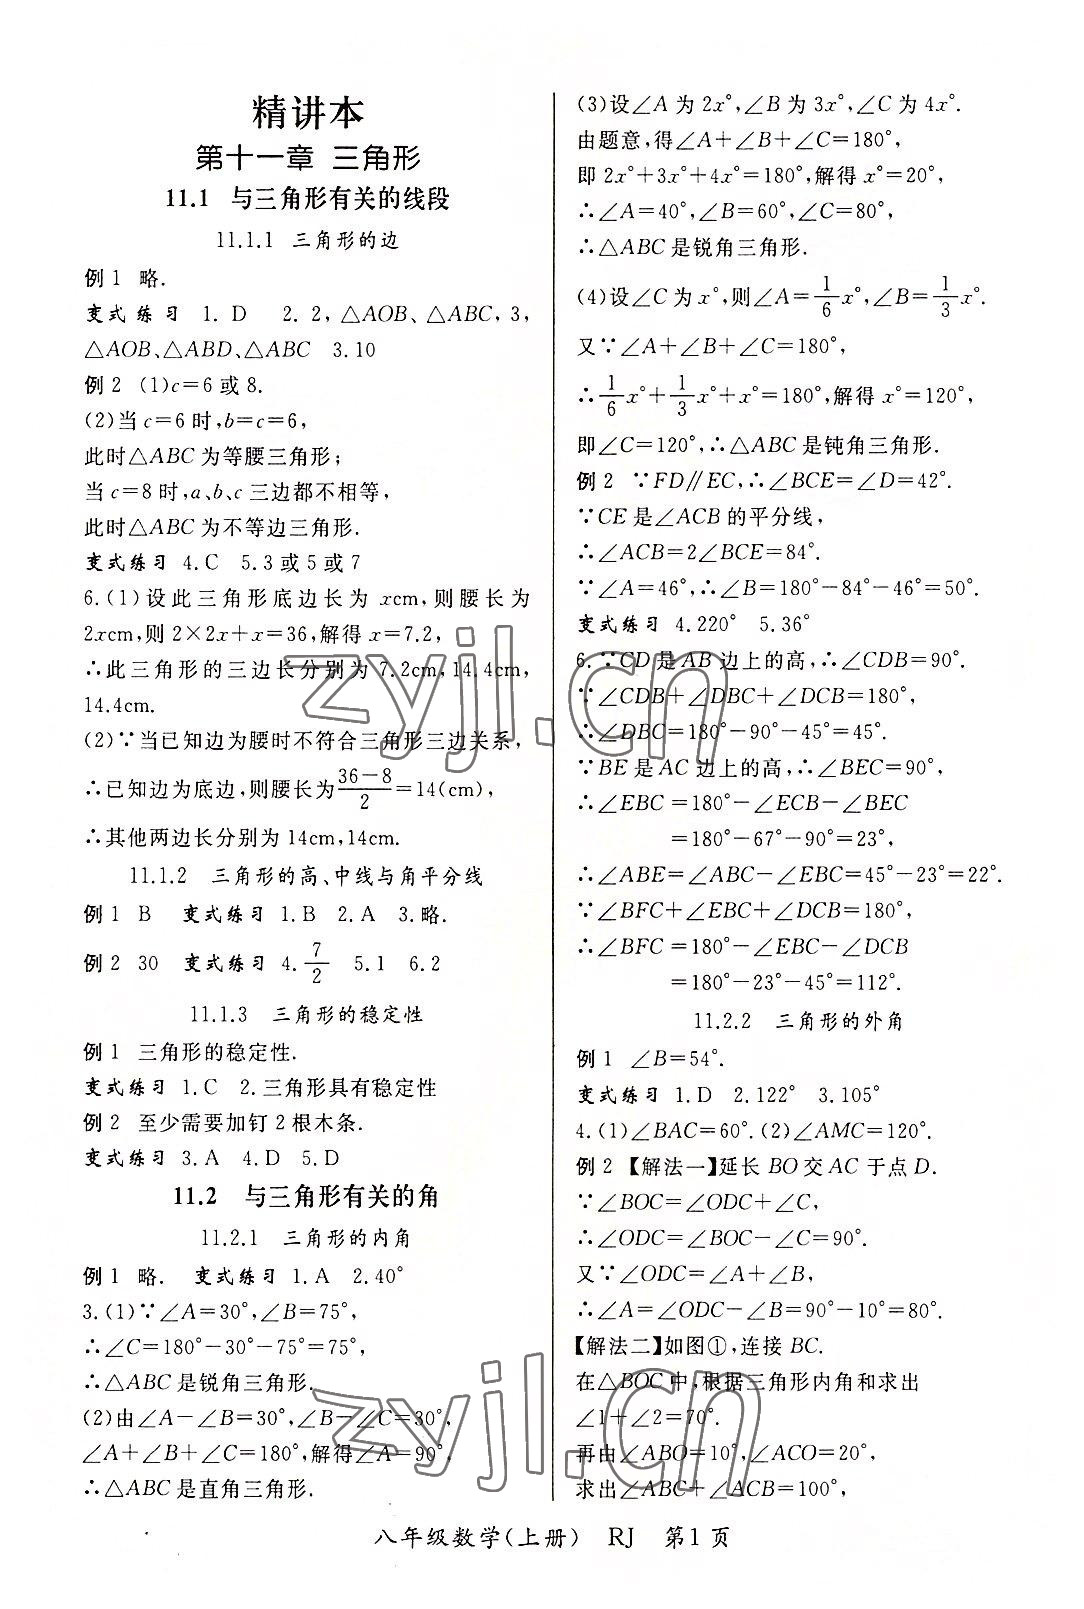 精讲本
第十一章 三角形
11.1 与三角形有关的线段
11.1.1 三角形的边
例1 略.
变式练习 1. D 2. 2,△AOB、△ABC,3,
△AOB、△ABD、△ABC 3.10
例2 (1)c=6或8.
(2)当c=6时,b=c=6,
此时△ABC为等腰三角形;
当c=8时,a、b、c三边都不相等,
此时△ABC为不等边三角形.
变式练习 4.C 5.3或5或7
6.(1)设此三角形底边长为xcm,则腰长为
2xcm,则2×2x+x=36,解得x=7.2,
∴此三角形的三边长分别为7.2cm,14.4cm,
14.4cm.
(2)∵当已知边为腰时不符合三角形三边关系,
∴已知边为底边,则腰长为\frac{36-8}{2}=14(cm),
∴其他两边长分别为14cm,14cm.
11.1.2 三角形的高、中线与角平分线
例1 B 变式练习 1.B 2.A 3.略.
例2 30 变式练习 4.\frac{7}{2} 5.1 6.2
11.1.3 三角形的稳定性
例1 三角形的稳定性.
变式练习 1.C 2.三角形具有稳定性
例2 至少需要加钉2根木条.
变式练习 3.A 4.D 5.D
11.2 与三角形有关的角
11.2.1 三角形的内角
例1 略. 变式练习 1.A 2.40°
3.(1)∵∠A=30°,∠B=75°,
∴∠C=180°-30°-75°=75°,
∴△ABC是锐角三角形.
(2)由∠A-∠B=30°,∠B-∠C=30°,
∠A+∠B+∠C=180°,解得∠A=90°,
∴△ABC是直角三角形.
(3)设∠A为2x°,∠B为3x°,∠C为4x°.
由题意,得∠A+∠B+∠C=180°,
即2x°+3x°+4x°=180°,解得x°=20°,
∴∠A=40°,∠B=60°,∠C=80°,
∴△ABC是锐角三角形.
(4)设∠C为x°,则∠A=\frac{1}{6}x°,∠B=\frac{1}{3}x°.
又∵∠A+∠B+∠C=180°,
∴\frac{1}{6}x°+\frac{1}{3}x°+x°=180°,解得x°=120°,
即∠C=120°,∴△ABC是钝角三角形.
例2 ∵FD∥EC,∴∠BCE=∠D=42°.
∵CE是∠ACB的平分线,
∴∠ACB=2∠BCE=84°.
∵∠A=46°,∴∠B=180°-84°-46°=50°.
变式练习 4.220° 5.36°
6.∵CD是AB边上的高,∴∠CDB=90°.
∵∠CDB+∠DBC+∠DCB=180°,
∴∠DBC=180°-90°-45°=45°.
∵BE是AC边上的高,∴∠BEC=90°,
∴∠EBC=180°-∠ECB-∠BEC
=180°-67°-90°=23°,
∴∠ABE=∠ABC-∠EBC=45°-23°=22°.
∵∠BFC+∠EBC+∠DCB=180°,
∴∠BFC=180°-∠EBC-∠DCB
=180°-23°-45°=112°.
11.2.2 三角形的外角
例1 ∠B=54°.
变式练习 1.D 2.122° 3.105°
4.(1)∠BAC=60°.(2)∠AMC=120°.
例2【解法一】延长BO交AC于点D.
∵∠BOC=∠ODC+∠C,
∴∠ODC=∠BOC-∠C=90°.
又∵∠ODC=∠A+∠B,
∴∠A=∠ODC-∠B=90°-10°=80°.
【解法二】如图①,连接BC.
在△BOC中,根据三角形内角和求出
∠1+∠2=70°.
再由∠ABO=10°,∠ACO=20°,
求出∠ABC+∠ACB=100°,
八年级数学(上册) RJ 第1页
zyjl.cn
zyjl.cn